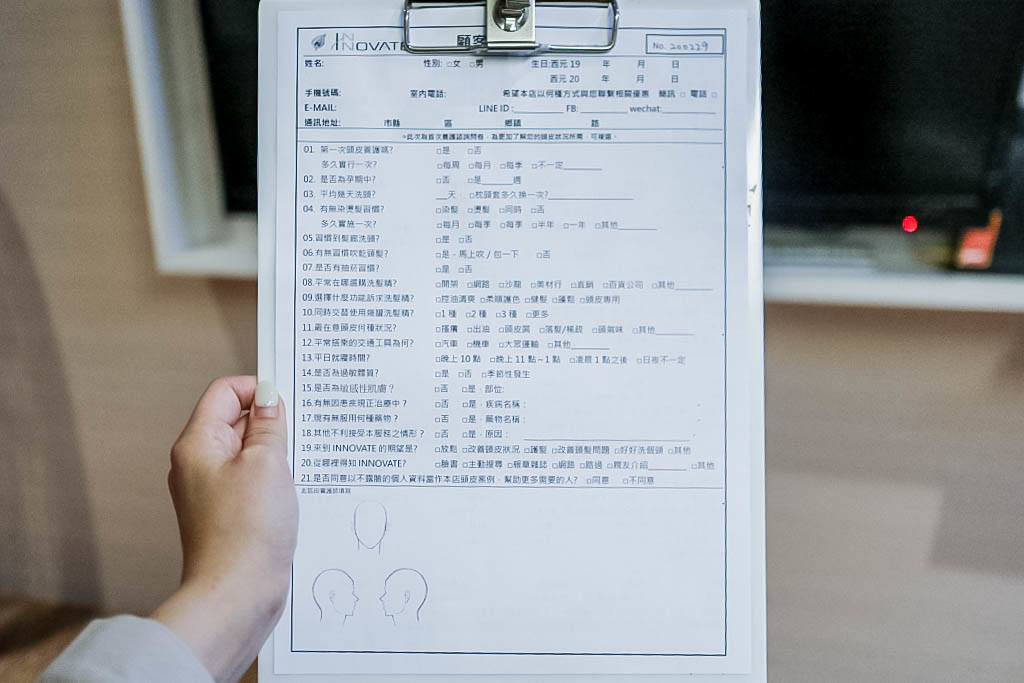 INNOVATE 顧客
No. 200229
姓名: 性別: □女 □男 生日:西元 19 年 月 日
西元 20 年 月 日
手機號碼: 室內電話: 希望本店以何種方式與您聯繫相關優惠 簡訊 □ 電話 □
E-MAIL: LINE ID :________ FB: ________ wechat:________
通訊地址: 市縣 區 鄉鎮 路
*此次為首次養護諮詢問卷,為更加了解您的頭皮狀況所需,可複選。
01. 第一次頭皮養護嗎? □是 □否
多久實行一次? □每周 □每月 □每季 □不一定________
02. 是否為孕期中? □否 □是______週
03. 平均幾天洗頭? __天 □枕頭套多久換一次?________
04. 有無染燙髮習慣? □染髮 □燙髮 □同時 □否
多久實施一次? □每月 □每季 □每季 □半年 □一年 □其他________
05.習慣到髮廊洗頭? □是 □否
06.有無習慣吹乾頭髮? □是,馬上吹 / 包一下 □否
07.是否有抽菸習慣? □是 □否
08.平常在哪選購洗髮精? □開架 □網路 □沙龍 □美材行 □直銷 □百貨公司 □其他________
09.選擇什麼功能訴求洗髮精? □控油清爽 □柔順護色 □健髮 □蓬鬆 □頭皮專用
10.同時交替使用幾罐洗髮精? □1 種 □2 種 □3 種 □更多
11.最在意頭皮何種狀況? □搔癢 □出油 □頭皮屑 □落髮/稀疏 □頭氣味 □其他________
12.平常搭乘的交通工具為何? □汽車 □機車 □大眾運輸 □其他________
13.平日就寢時間? □晚上 10 點 □晚上 11 點~1 點 □凌晨 1 點之後 □日夜不一定
14.是否為過敏體質? □是 □否 □季節性發生
15.是否為敏感性肌膚? □否 □是,部位:
16.有無因患疾現正治療中? □否 □是,疾病名稱:
17.現有無服用何種藥物? □否 □是,藥物名稱:
18.其他不利接受本服務之情形? □否 □是,原因:________
19.來到 INNOVATE 的期望是? □放鬆 □改善頭皮狀況 □護髮 □改善頭髮問題 □好好洗個頭 □其他
20.從哪裡得知 INNOVATE? □臉書 □主動搜尋 □報章雜誌 □網路 □路過 □親友介紹________ □其他
21.是否同意以不露臉的個人資料當作本店頭皮案例,幫助更多需要的人? □同意 □不同意